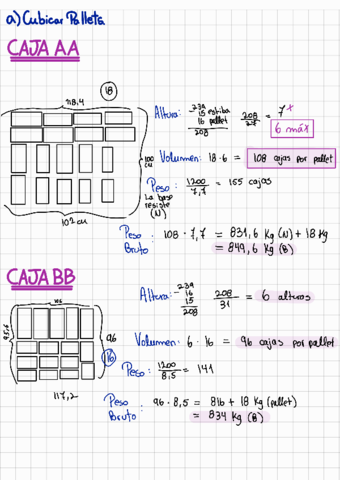 a) Cubicar Pallets
CAJA AA
18
118,4
100 cm
102 cm
Altura: -239
15 estiba
16 pallet
208
208/27 = 7 x
6 máx
Volumen: 18·6 = 108 cajas por pallet
Peso: 1200/7,7 = 155 cajas
La base resiste (N)
Peso Bruto: 108 · 7,7 = 831,6 Kg (N) + 18 Kg
= 849,6 Kg (B)
CAJA BB
106
95,6
96
16
117,2
Altura: -239
16
15
208
208/31 = 6 alturas
Volumen: 6 · 16 = 96 cajas por pallet
Peso: 1200/8,5 = 141
Peso Bruto: 96 · 8,5 = 816 + 18 Kg (pallet)
= 834 Kg (B)